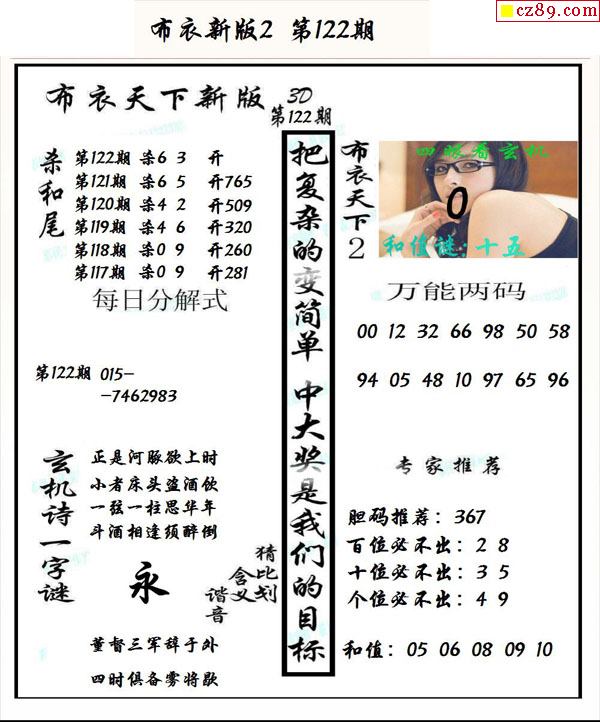 cz89.com
布衣新版2 第122期
布衣天下新版 3D
第122期
杀和尾
第122期 杀6 3 开
第121期 杀6 5 开765
第120期 杀4 2 开509
第119期 杀4 6 开320
第118期 杀0 9 开260
第117期 杀0 9 开281
每日分解式
第122期 015-
-7462983
玄机诗一字谜
正是河豚欲上时
小者床头盗酒饮
一弦一柱思华年
斗酒相逢须醉倒
永
猜比划
含义
谐音
董督三军辞于外
四时俱备雾将歇
把复杂的变简单 中大奖是我们的目标
布衣天下2
四眼看玄机
0
和值谜:十五
万能两码
00 12 32 66 98 50 58
94 05 48 10 97 65 96
专家推荐
胆码推荐：367
百位必不出：2 8
十位必不出：3 5
个位必不出：4 9
和值：05 06 08 09 10